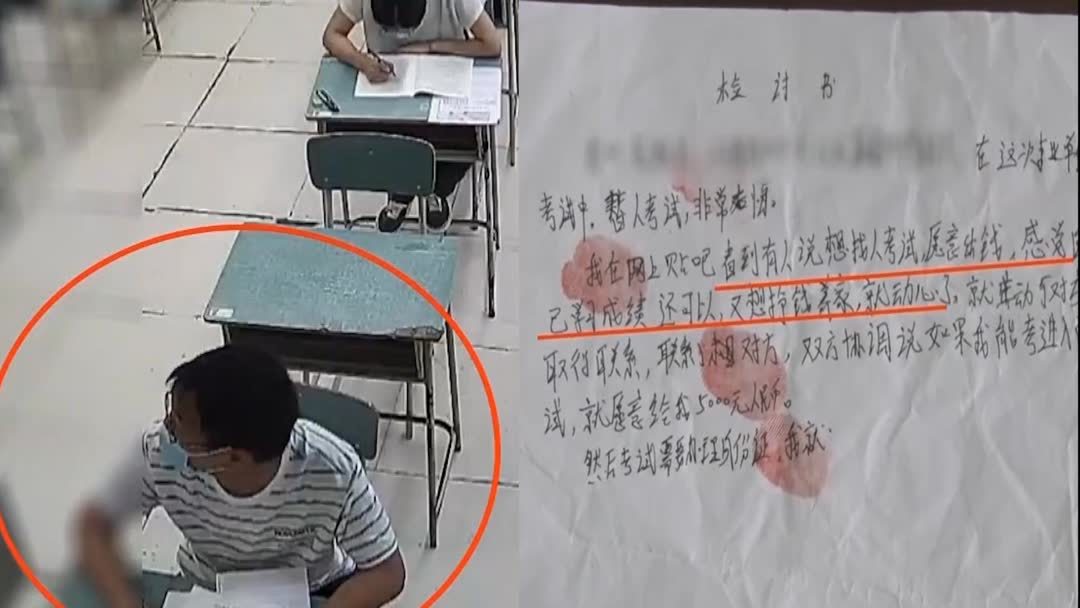 检讨书
在这次事业单
考试中，替人考试，非常后悔。
我在网上贴吧看到有人说想找人考试愿意出钱，感觉自
己考试成绩还可以，又想挣钱养家，就动心了，就主动和对方
取得联系，联系了想对方，双方协调说如果我能考进入
试，就愿意给我5000元人民币。
然后考试需要办理身份证，我就